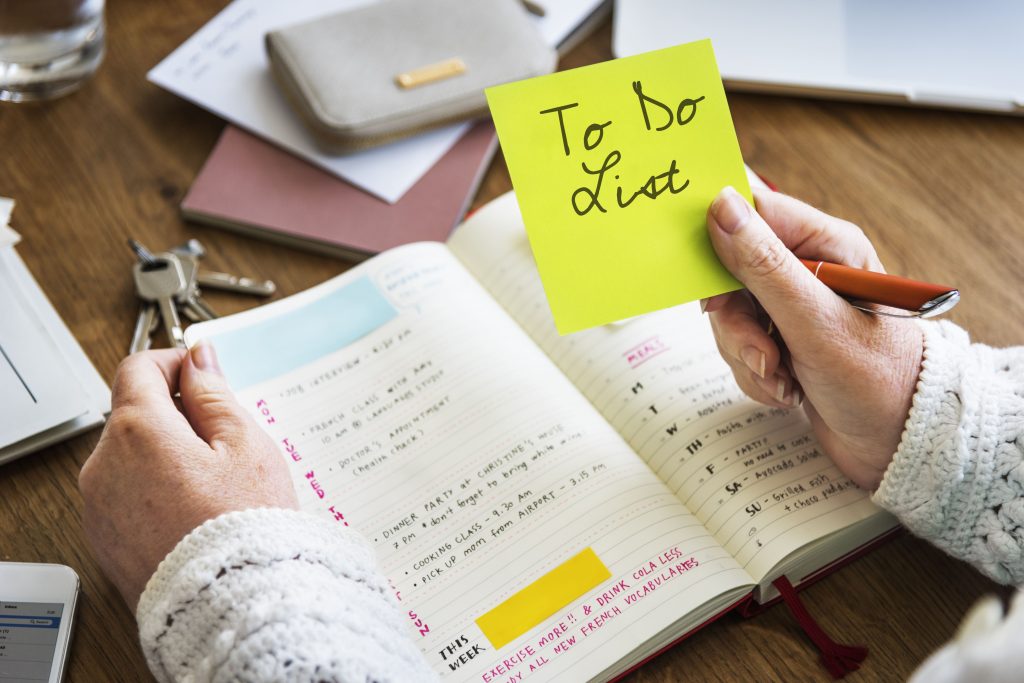 To Do
List
JOB INTERVIEW - 4:20 pm
MON
TUE
WED
TH
SUN
• FRENCH CLASS with Amy
10 am @ LANGUAGES STUDIO
• DOCTOR'S APPOINTMENT
(health check)
• DINNER PARTY at CHRISTINE'S HOUSE
7 pm * don't forget to bring white wine
• COOKING CLASS - 9.30 AM
• PICK UP mom from AIRPORT - 3.15 pm
THIS
WEEK
EXERCISE MORE!! & DRINK COLA LESS
ALL NEW FRENCH VOCABULARIES
MEALS
M
T
W - Roasted
TH - Pasta with
F - PARTY!
no need to cook
SA - Avocado Salad
SU - Grilled fish
+ choco pudding
Inbox
Search